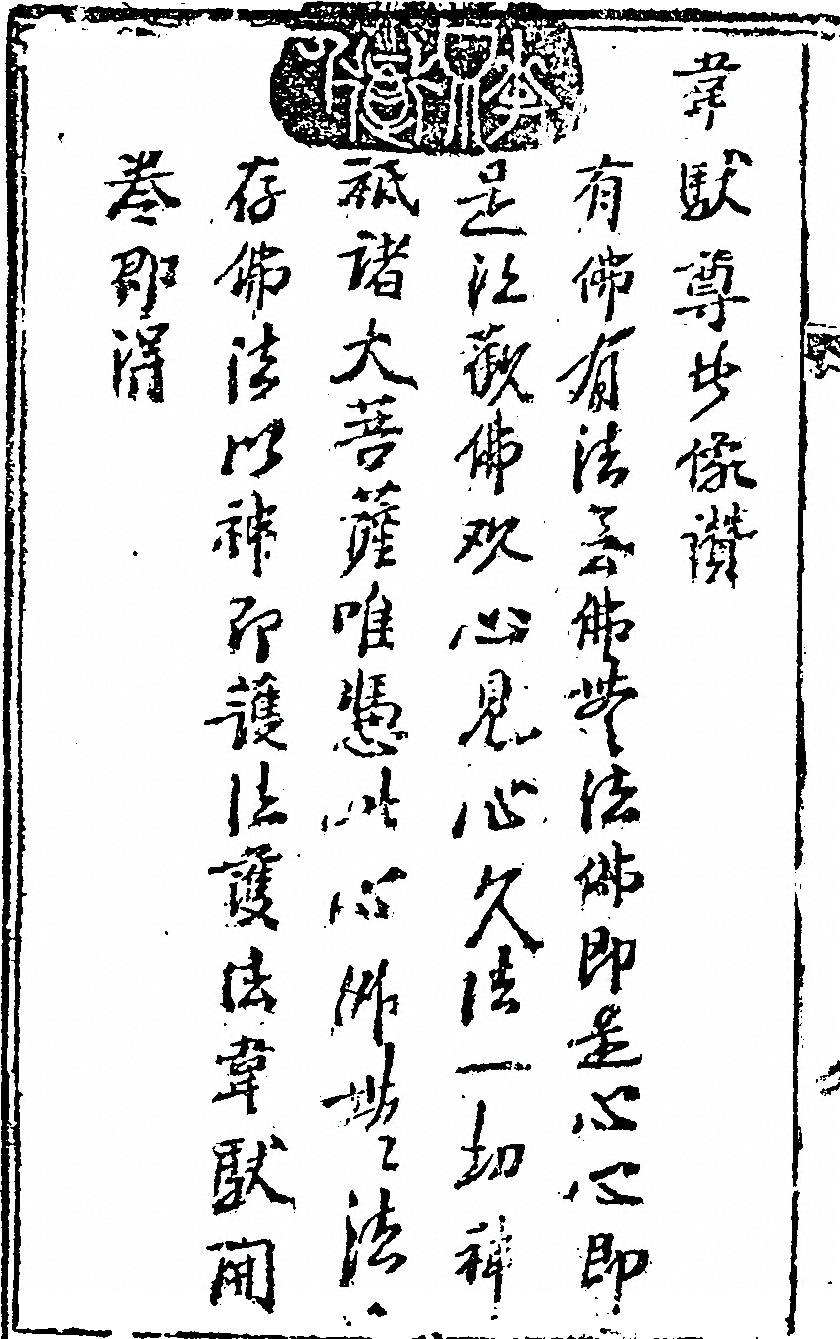 韋馱尊者像讚
有佛有法無佛無法佛即是心心即
是法觀佛观心見心久法一切神
祇諸大菩薩唯憑此心佛無〻法〻
存佛法以神即護法護法韋馱開
卷即得